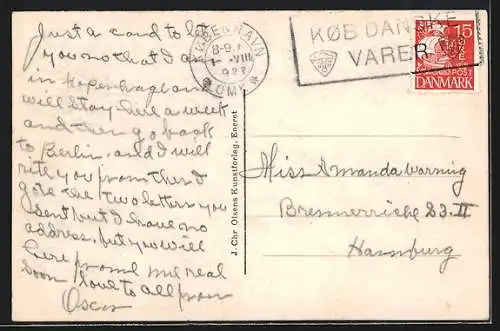 Just a card to let
you now that I am
in Kopenhagen and
will stay here a week
and then go back
to Berlin, and I will
rite you from ther I
gote the two letters you
sent but I have no
address, but you will
here from me real
soon love to all from
Oscar
KØBENHAVN
8-9.
1. VIII
OMK
KØB DANSKE
VARER
15
POST
DANMARK
J. Chr Olsens Kunstforlag. Eneret
Miss Amanda Warnig
Brennerriche 23-II
Hamburg